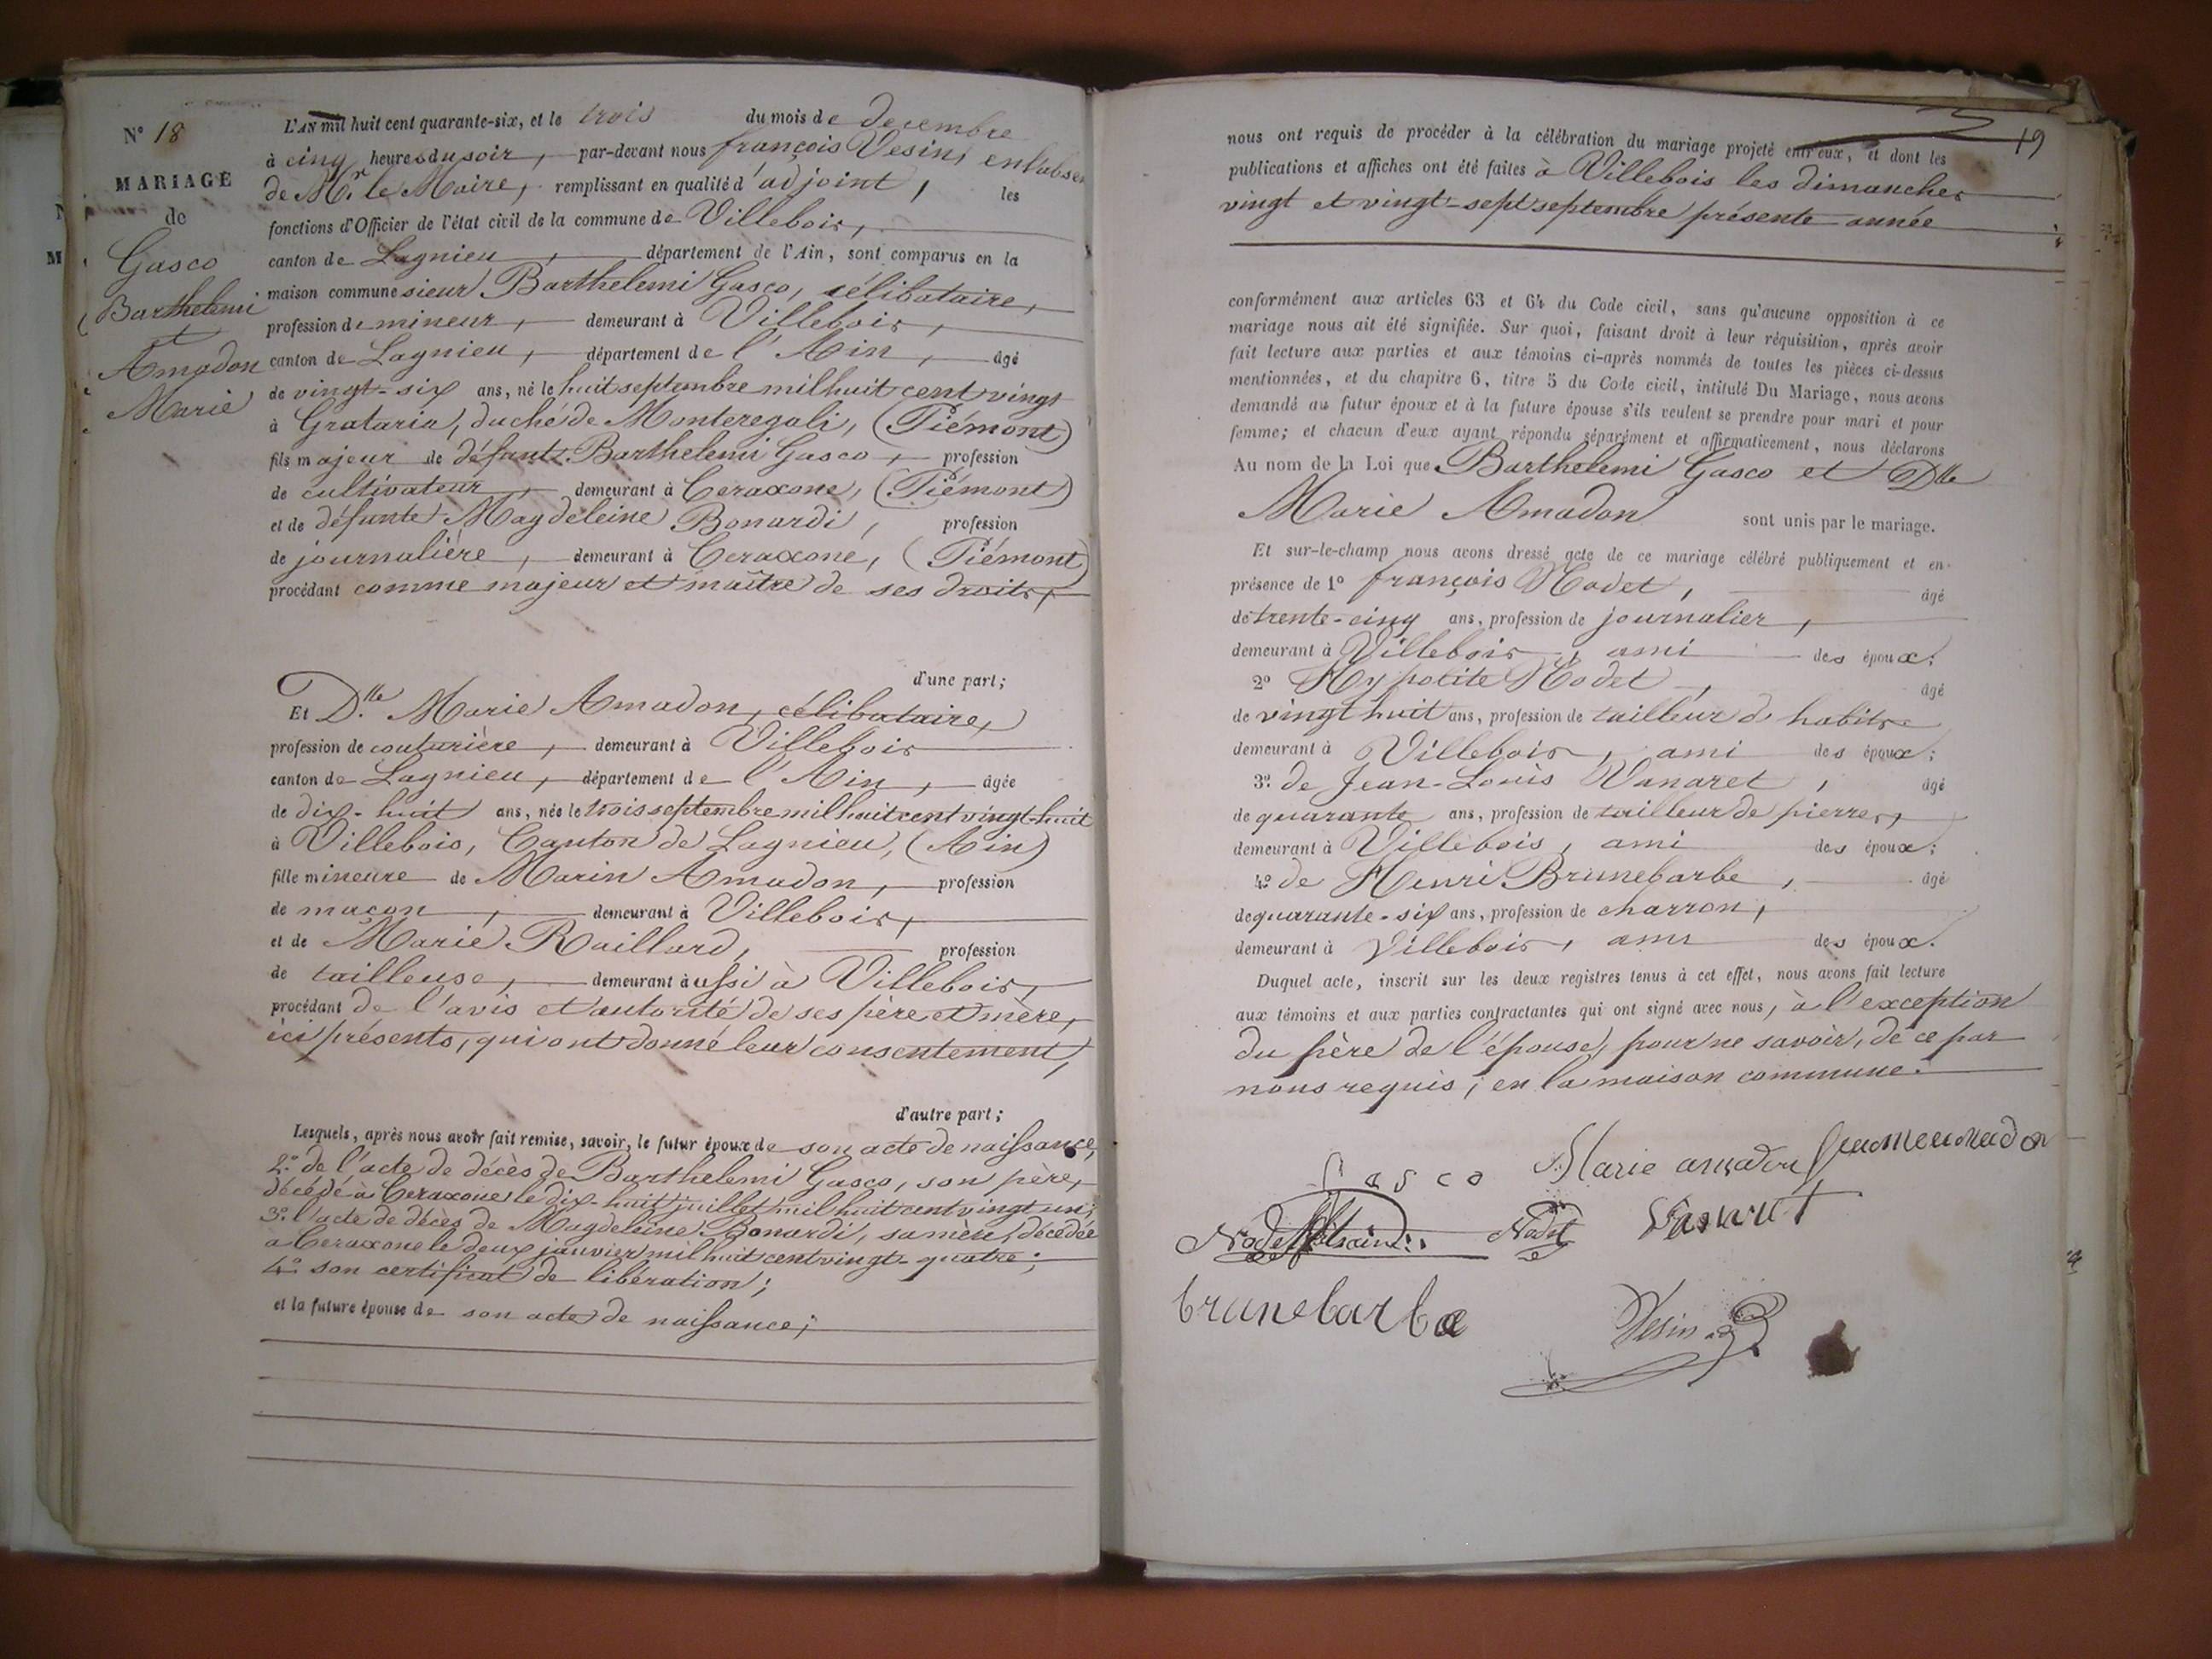 N° 18
MARIAGE
de
Gasco
Barthelemi
et
Amadon
Marie
L'AN mil huit cent quarante-six, et le trois du mois de decembre
à cinq heures du soir, par-devant nous françois Vesin, en l'absen
de Mr. le Maire, remplissant en qualité d'adjoint, les
fonctions d'Officier de l'état civil de la commune de Villebois,
canton de Lagnieu, département de l'Ain, sont comparus en la
maison commune sieur Barthelemi Gasco, célibataire,
profession de mineur, demeurant à Villebois,
canton de Lagnieu, département de l'Ain, âgé
de vingt-six ans, né le huit septembre mil huit cent vingt
à Grataria, duché de Monteregali, (Piémont)
fils majeur de défunt Barthelemi Gasco, profession
de cultivateur, demeurant à Ceraxone, (Piémont)
et de défunte Magdeleine Bonardi, profession
de journalière, demeurant à Ceraxone, (Piémont)
procédant comme majeur et maître de ses droits,
d'une part;
Et Dlle Marie Amadon, célibataire,
profession de couturière, demeurant à Villebois
canton de Lagnieu, département de l'Ain, âgée
de dix-huit ans, née le trois septembre mil huit cent vingt-huit
à Villebois, Canton de Lagnieu, (Ain)
fille mineure de Marin Amadon, profession
de maçon, demeurant à Villebois,
et de Marie Raillard, profession
de tailleuse, demeurant aussi à Villebois,
procédant de l'avis et autorité de ses père et mère,
ici présents, qui ont donné leur consentement,
d'autre part;
Lesquels, après nous avoir fait remise, savoir, le futur époux de son acte de naissance,
2° de l'acte de décès de Barthelemi Gasco, son père,
décédé à Ceraxone le dix-huit juillet mil huit cent vingt un;
3° l'acte de décès de Magdeleine Bonardi, sa mère, décédée
à Ceraxone le deux janvier mil huit cent vingt-quatre;
4° son certificat de libération;
et la future épouse de son acte de naissance;
19
nous ont requis de procéder à la célébration du mariage projeté entr'eux, et dont les
publications et affiches ont été faites à Villebois les dimanches
vingt et vingt-sept septembre présente année
conformément aux articles 63 et 64 du Code civil, sans qu'aucune opposition à ce
mariage nous ait été signifiée. Sur quoi, faisant droit à leur réquisition, après avoir
fait lecture aux parties et aux témoins ci-après nommés de toutes les pièces ci-dessus
mentionnées, et du chapitre 6, titre 5 du Code civil, intitulé Du Mariage, nous avons
demandé au futur époux et à la future épouse s'ils veulent se prendre pour mari et pour
femme; et chacun d'eux ayant répondu séparément et affirmativement, nous déclarons
Au nom de la Loi que Barthelemi Gasco et Dlle
Marie Amadon sont unis par le mariage.
Et sur-le-champ nous avons dressé acte de ce mariage célébré publiquement et en
présence de 1° françois Nodet, âgé
de trente-cinq ans, profession de journalier,
demeurant à Villebois, ami des époux;
2° Hypolite Nodet, âgé
de vingt huit ans, profession de tailleur d'habits
demeurant à Villebois, ami des époux;
3° de Jean-Louis Vanaret, âgé
de quarante ans, profession de tailleur de pierres,
demeurant à Villebois, ami des époux;
4° de Henri Brunebarbe, âgé
de quarante-six ans, profession de charron,
demeurant à Villebois, ami des époux.
Duquel acte, inscrit sur les deux registres tenus à cet effet, nous avons fait lecture
aux témoins et aux parties contractantes qui ont signé avec nous, à l'exception
du père de l'épouse, pour ne savoir, de ce par
nous requis; en la maison commune.
Gasco Marie amadon
Nodet Vanaret
brunebarbe Vesin adj